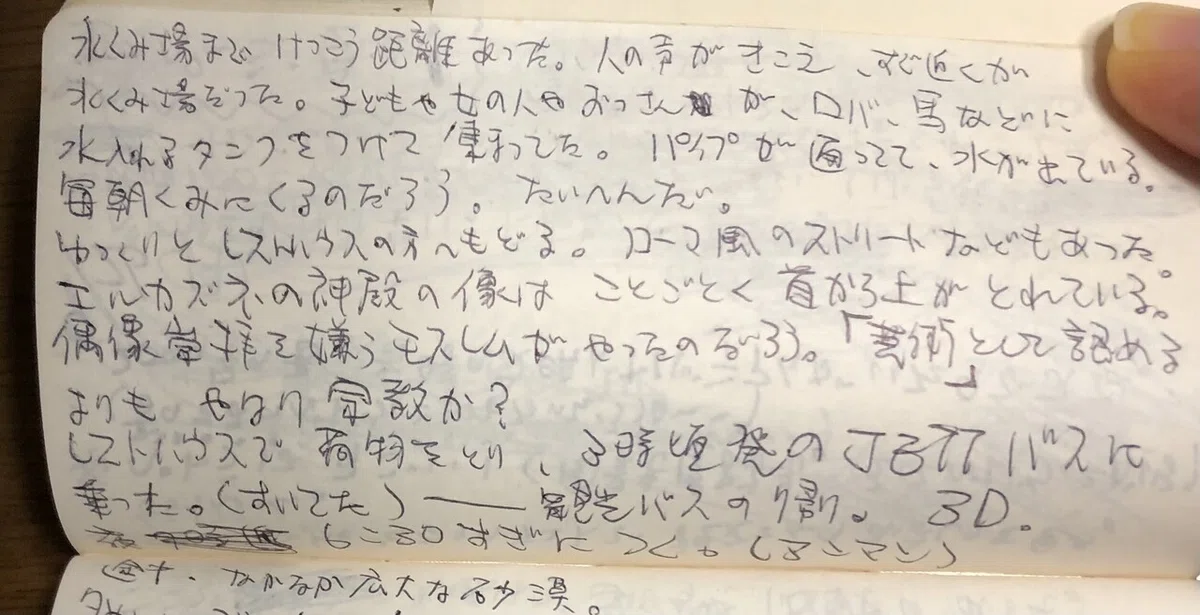 水くみ場まで けっこう距離あった。人の声がきこえ、すぐ近くが
水くみ場だった。子どもや女の人やおっさんが、ロバ、馬などに
水入れるタンクをつけて 集まってた。パイプが通ってて、水が出ている。
毎朝くみにくるのだろう。たいへんだ。
ゆっくりとレストハウスの方へもどる。ローマ風のストリートなどもあった。
エルカズネの神殿の像は ことごとく 首から上がとれている。
偶像崇拝を嫌うモスレムがやったのだろう。「芸術」として認める
よりも やはり宗教か?
レストハウスで 荷物をとり、3時頃発のJETTバスに
乗った。(すいてた)――観光バスの帰り。3D。
6:30すぎにつく。(アンマン)
途中、なかなか広大な砂漠。